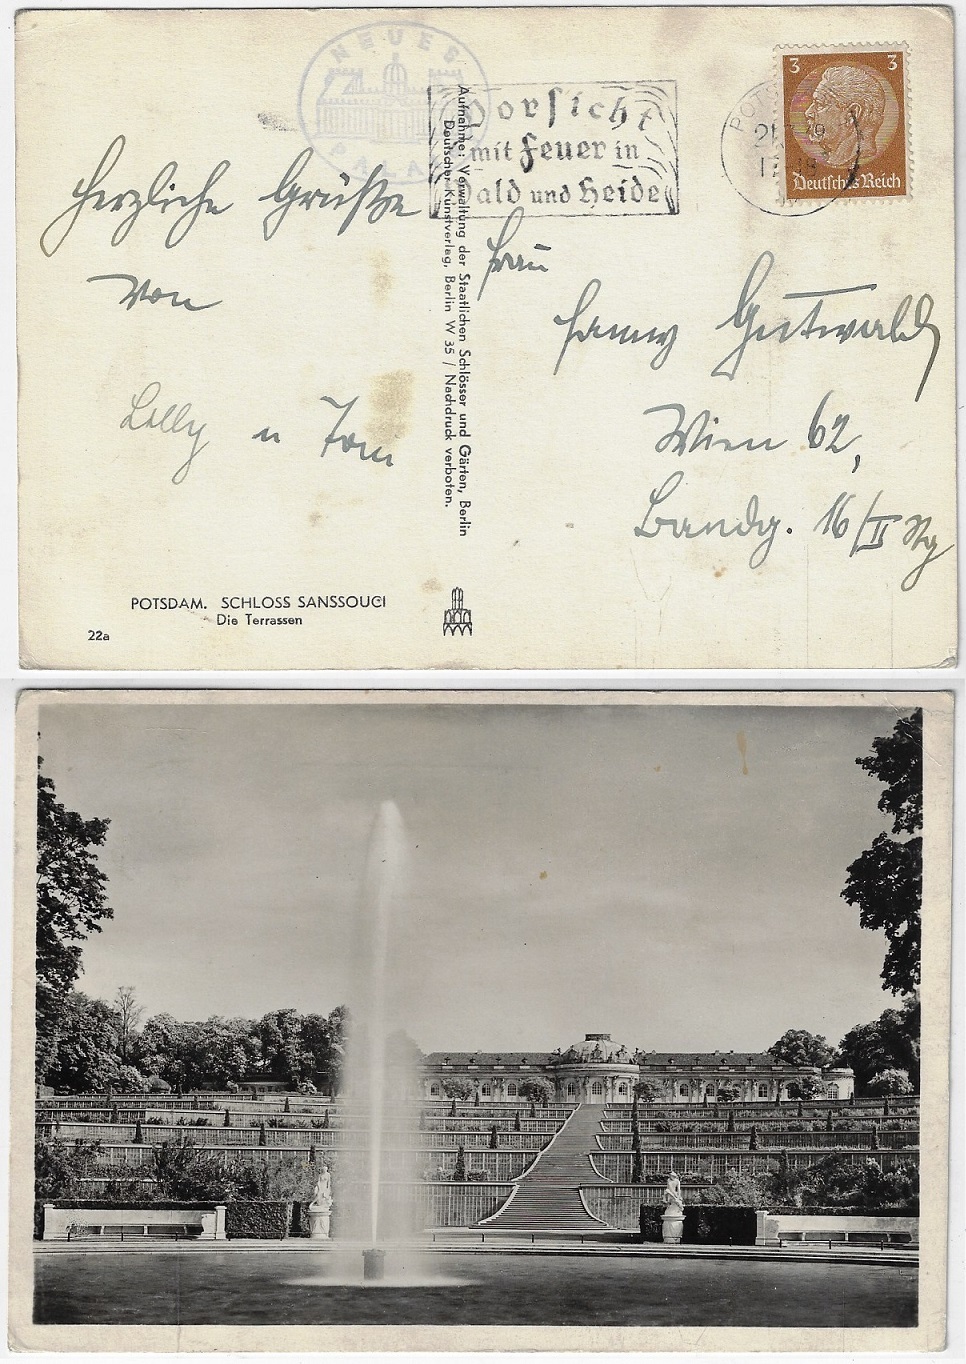 NEUES
PALAIS
Vorsicht
mit Feuer in
Wald und Heide
POTS
3 3
Deutsches Reich
Herzliche Grüße
von
Lolly u Toni
Frau
Fanny Gutwald
Wien 62,
Bandg. 16/II Stg
Aufnahme: Verwaltung der Staatlichen Schlösser und Gärten, Berlin
Deutscher Kunstverlag, Berlin W 35 / Nachdruck verboten.
POTSDAM. SCHLOSS SANSSOUCI
Die Terrassen
22a